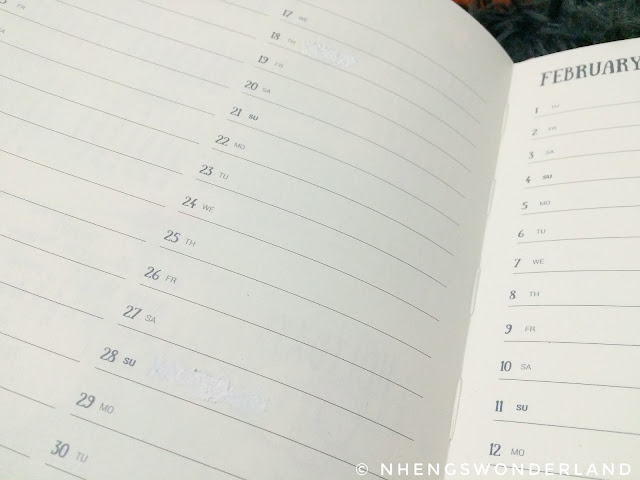 FR
17 WE
18 TH
19 FR
20 SA
21 SU
22 MO
23 TU
24 WE
25 TH
26 FR
27 SA
28 SU
29 MO
30 TU
FEBRUARY
1 TH
2 FR
3 SA
4 SU
5 MO
6 TU
7 WE
8 TH
9 FR
10 SA
11 SU
12 MO
© NHENGSWONDERLAND